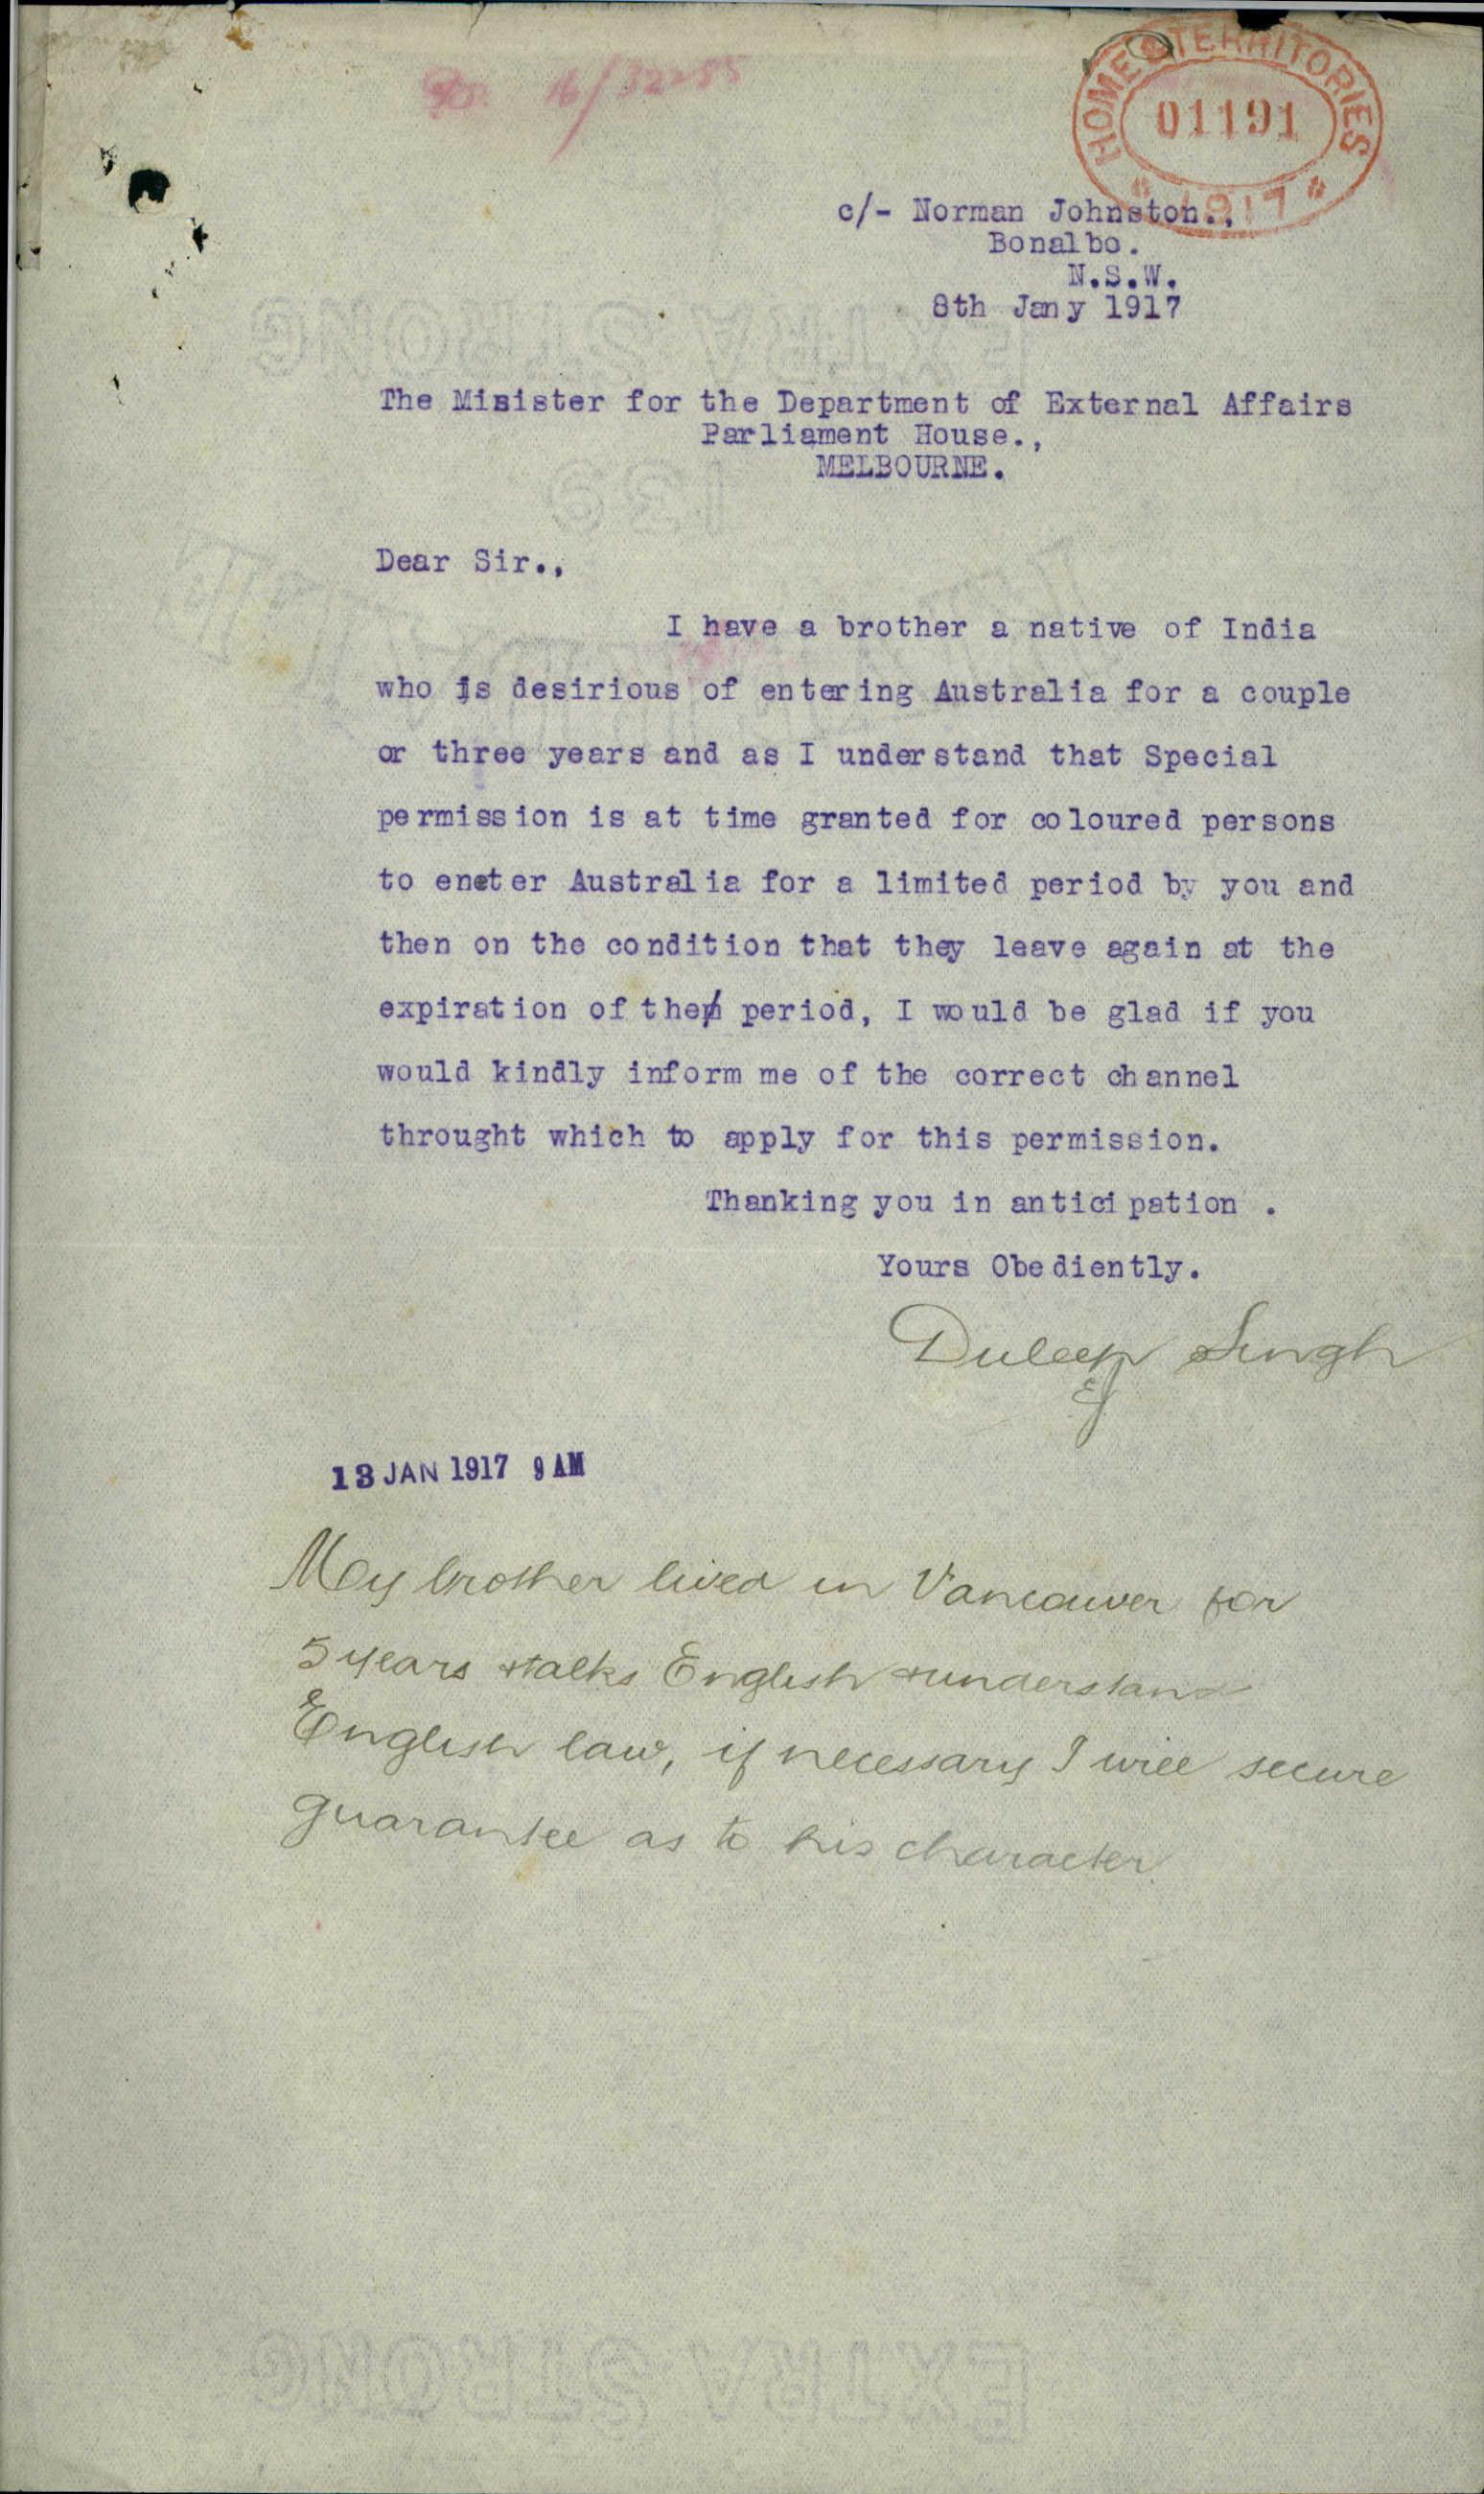 16/32255
HOME & TERRITORIES
01191
1917
c/- Norman Johnston.,
Bonalbo.
N.S.W.
8th Jany 1917
The Minister for the Department of External Affairs
Parliament House.,
MELBOURNE.
Dear Sir.,
I have a brother a native of India
who is desirious of entering Australia for a couple
or three years and as I understand that Special
permission is at time granted for coloured persons
to eneter Australia for a limited period by you and
then on the condition that they leave again at the
expiration of the period, I would be glad if you
would kindly inform me of the correct channel
throught which to apply for this permission.
Thanking you in anticipation .
Yours Obediently.
Duleep Singh
13 JAN 1917 9 AM
My brother lived in Vancouver for
5 years & talks English & understand
English law, if necessary I will secure
guarantee as to his character
EXTRA STRONG